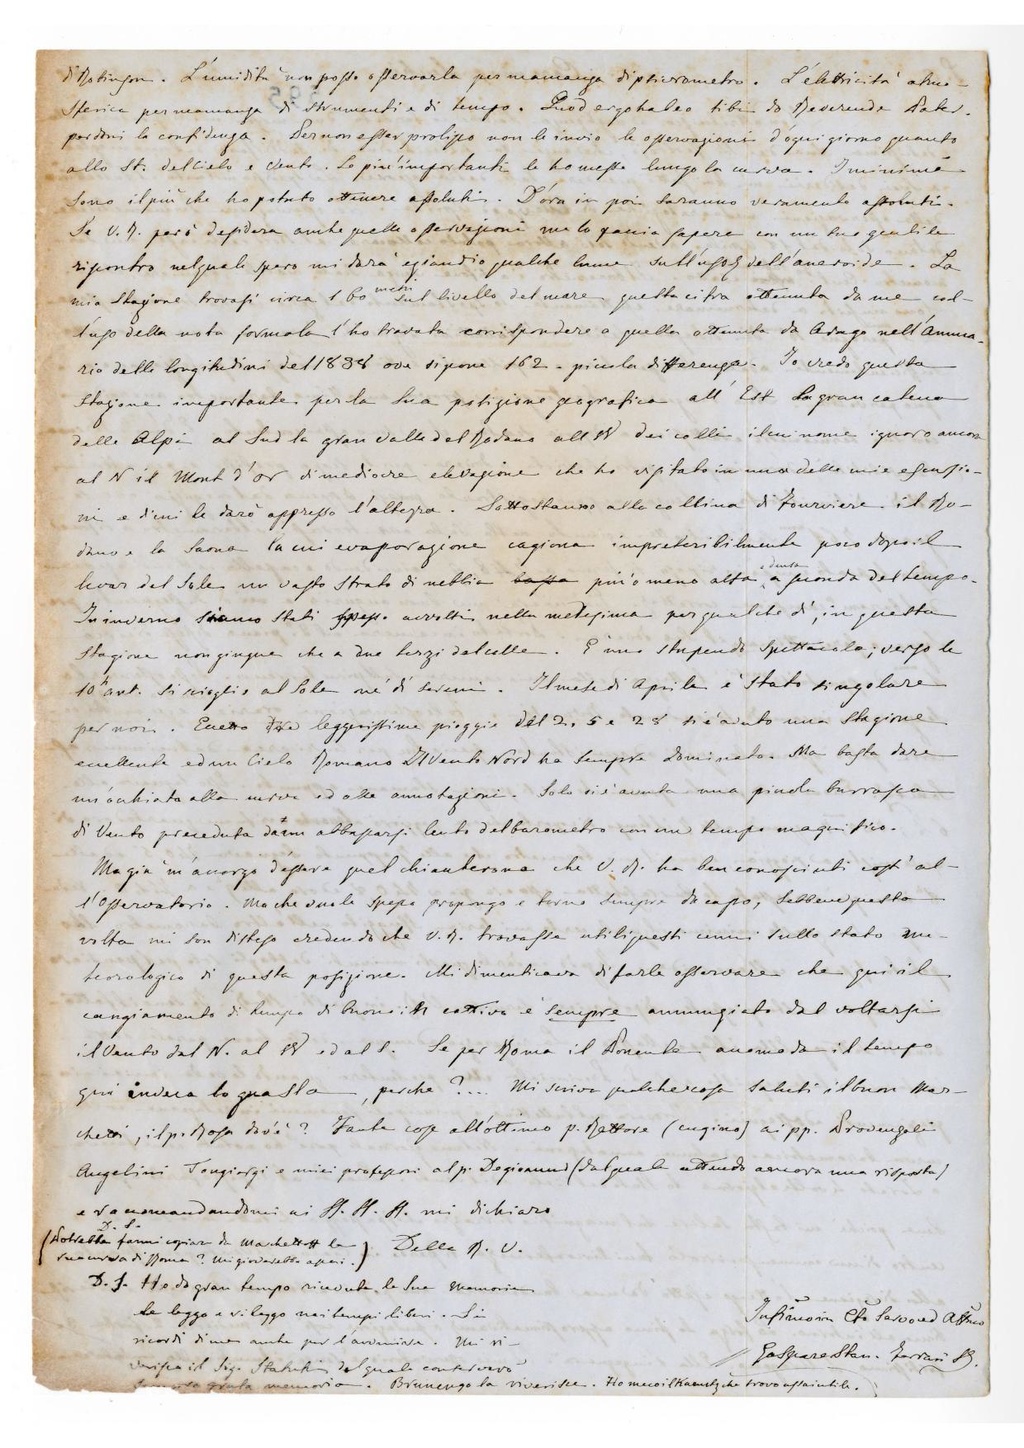 di Robinson. L'umidità non posso osservarla per mancanza di psicrometro. L'elettricità atmo-
sferica per mancanza di strumenti e di tempo. Quod ergo habeo tibi do Reverende Pater.
perdoni la confidenza. Per non esser prolisso non le invio le osservazioni d'ogni giorno quanto
allo St. del Cielo e Vento. Le più importanti le ho messe lungo la curva. I minimi
sono il più che ho potuto ottenere assoluti. D'ora in poi saranno veramente assoluti.
Se V. R. però desidera anche quelle osservazioni me lo faccia sapere con un suo gentile
riscontro nel quale spero mi darà eziandio qualche lume sull'uso dell'aneroide. La
mia Stazione trovasi circa 160 metri sul livello del mare, questa cifra ottenuta da me col-
l'uso della nota formola l'ho trovata corrispondere a quella ottenuta da Arago nell'Annua-
rio delle longitudini del 1838 ove si pone 162 - piccola differenza. Io credo questa
Stazione importante per la sua posizione geografica all'Est la gran catena
delle Alpi al Sud la gran valle del Rodano all'W dei colli il cui nome ignoro ancora
al N il Mont d'or di mediocre elevazione che ho visitato in una delle mie escursio-
ni e di cui le darò appresso l'altezza. Sottostanno alla collina di Fourviere il Ro-
dano e la Saona la cui evaporazione cagiona impreteribilmente poco dopo il
levar del Sole un vasto strato di nebbia bassa più o meno alta e densa a seconda del tempo.
In inverno siamo stati spesso avvolti nella medesima per qualche dì, in questa
Stagione non giunge che a due terzi del colle. È uno stupendo spettacolo; verso le
10h ant. si scioglie al Sole ne' dì sereni. Il mese di Aprile è stato singolare
per noi. Eccetto tre leggerissime pioggie del 2, 5 e 28 si è avuto una Stagione
eccellente ed un Cielo Romano Il Vento Nord ha sempre dominato. Ma basta dare
un'occhiata alla curva ed alle annotazioni. Solo si è avuta una piccola burrasca
di Vento preceduta da un abbassarsi lento del barometro con un tempo magnifico.
Ma già m'accorgo d'essere quel chiacchierone che V. R. ha ben conosciuti costì al-
l'Osservatorio. Ma che vuole spesso propongo e torno sempre da capo, sebbene questa
volta mi son disteso credendo che V. R. trovasse utili questi cenni sullo stato me-
teorologico di questa posizione. Mi dimenticava di farle osservare che qui il
cangiamento di tempo di buono in cattivo è sempre annunziato dal voltarsi
il Vento dal N. al W ed al S. Se per Roma il Ponente accomoda il tempo
qui invece lo guasta, perche?... Mi scriva qualche cosa saluti il buon Mar-
chetti, il p. Rosa dov'è? Tante cose all'ottimo p. Rettore (cugino) ai pp. Provenzali
Angelini Tongiorgi e miei professori al p. Degiovanni (dal quale attendo ancora una risposta)
e raccomandandomi ai SS. SS. SS. mi dichiaro
D. S.
(Potrebbe farmi copiare da Marchetti la
sua curva di Roma? Mi gioverebbe assai.)
Della R. V.
P. S. Ho da gran tempo ricevuta la Sua Memoria
la leggo e rileggo nei tempi liberi. Si
ricordi di me anche per l'avvenire. Mi ri-
verisca il Sig. Statuti del quale conservo
grata memoria. Brunengo la riverisce. Ho meco il Kaemtz che trovo assai utile.
Infimo in Cto Servo ed Affmo
Gaspare Stan. Ferrari SJ.